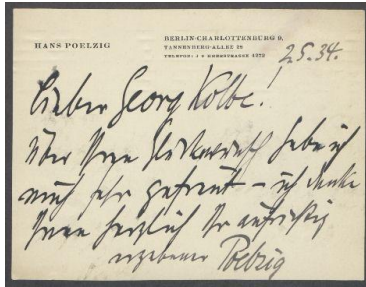 HANS POELZIG
BERLIN-CHARLOTTENBURG 9,
TANNENBERG-ALLEE 28
TELEFON: J 3 HEERSTRASSE 4272
2.5.34.
Lieber Georg Kolbe!
Über Ihren Glückwunsch habe ich
mich sehr gefreut – ich danke
Ihnen herzlich Ihr aufrichtig
ergebener Poelzig